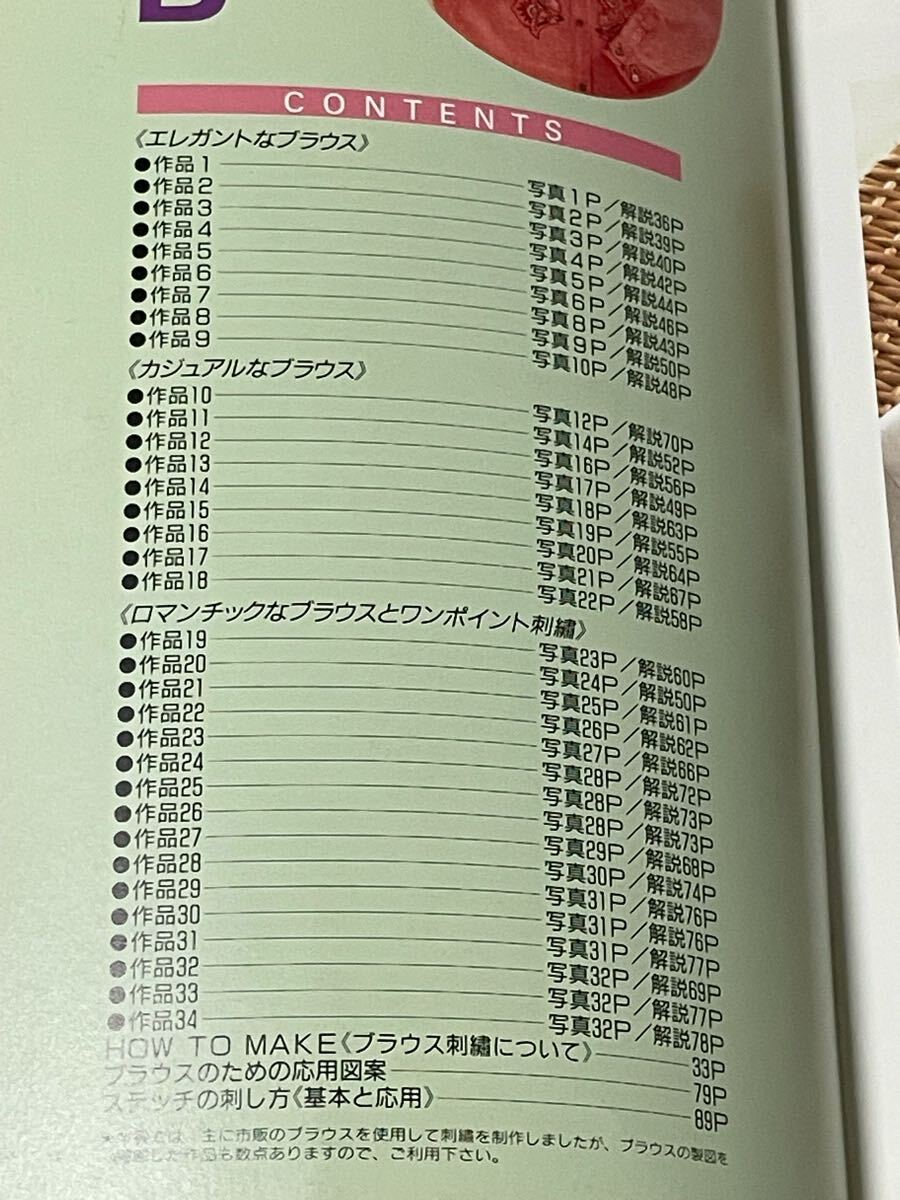 CONTENTS
《エレガントなブラウス》
●作品1 写真1P／解説36P
●作品2 写真2P／解説39P
●作品3 写真3P／解説40P
●作品4 写真4P／解説42P
●作品5 写真5P／解説44P
●作品6 写真6P／解説46P
●作品7 写真8P／解説43P
●作品8 写真9P／解説50P
●作品9 写真10P／解説48P
《カジュアルなブラウス》
●作品10 写真12P／解説70P
●作品11 写真14P／解説52P
●作品12 写真16P／解説56P
●作品13 写真17P／解説49P
●作品14 写真18P／解説63P
●作品15 写真19P／解説55P
●作品16 写真20P／解説64P
●作品17 写真21P／解説67P
●作品18 写真22P／解説58P
《ロマンチックなブラウスとワンポイント刺繡》
●作品19 写真23P／解説60P
●作品20 写真24P／解説50P
●作品21 写真25P／解説61P
●作品22 写真26P／解説62P
●作品23 写真27P／解説66P
●作品24 写真28P／解説72P
●作品25 写真28P／解説73P
●作品26 写真28P／解説73P
●作品27 写真29P／解説68P
●作品28 写真30P／解説74P
●作品29 写真31P／解説76P
●作品30 写真31P／解説76P
●作品31 写真31P／解説77P
●作品32 写真32P／解説69P
●作品33 写真32P／解説77P
●作品34 写真32P／解説78P
HOW TO MAKE《ブラウス刺繡について》 33P
ブラウスのための応用図案 79P
ステッチの刺し方《基本と応用》 89P
では、主に市販のブラウスを使用して刺繡を制作しましたが、ブラウスの製図を
した作品も数点ありますので、ご利用下さい。